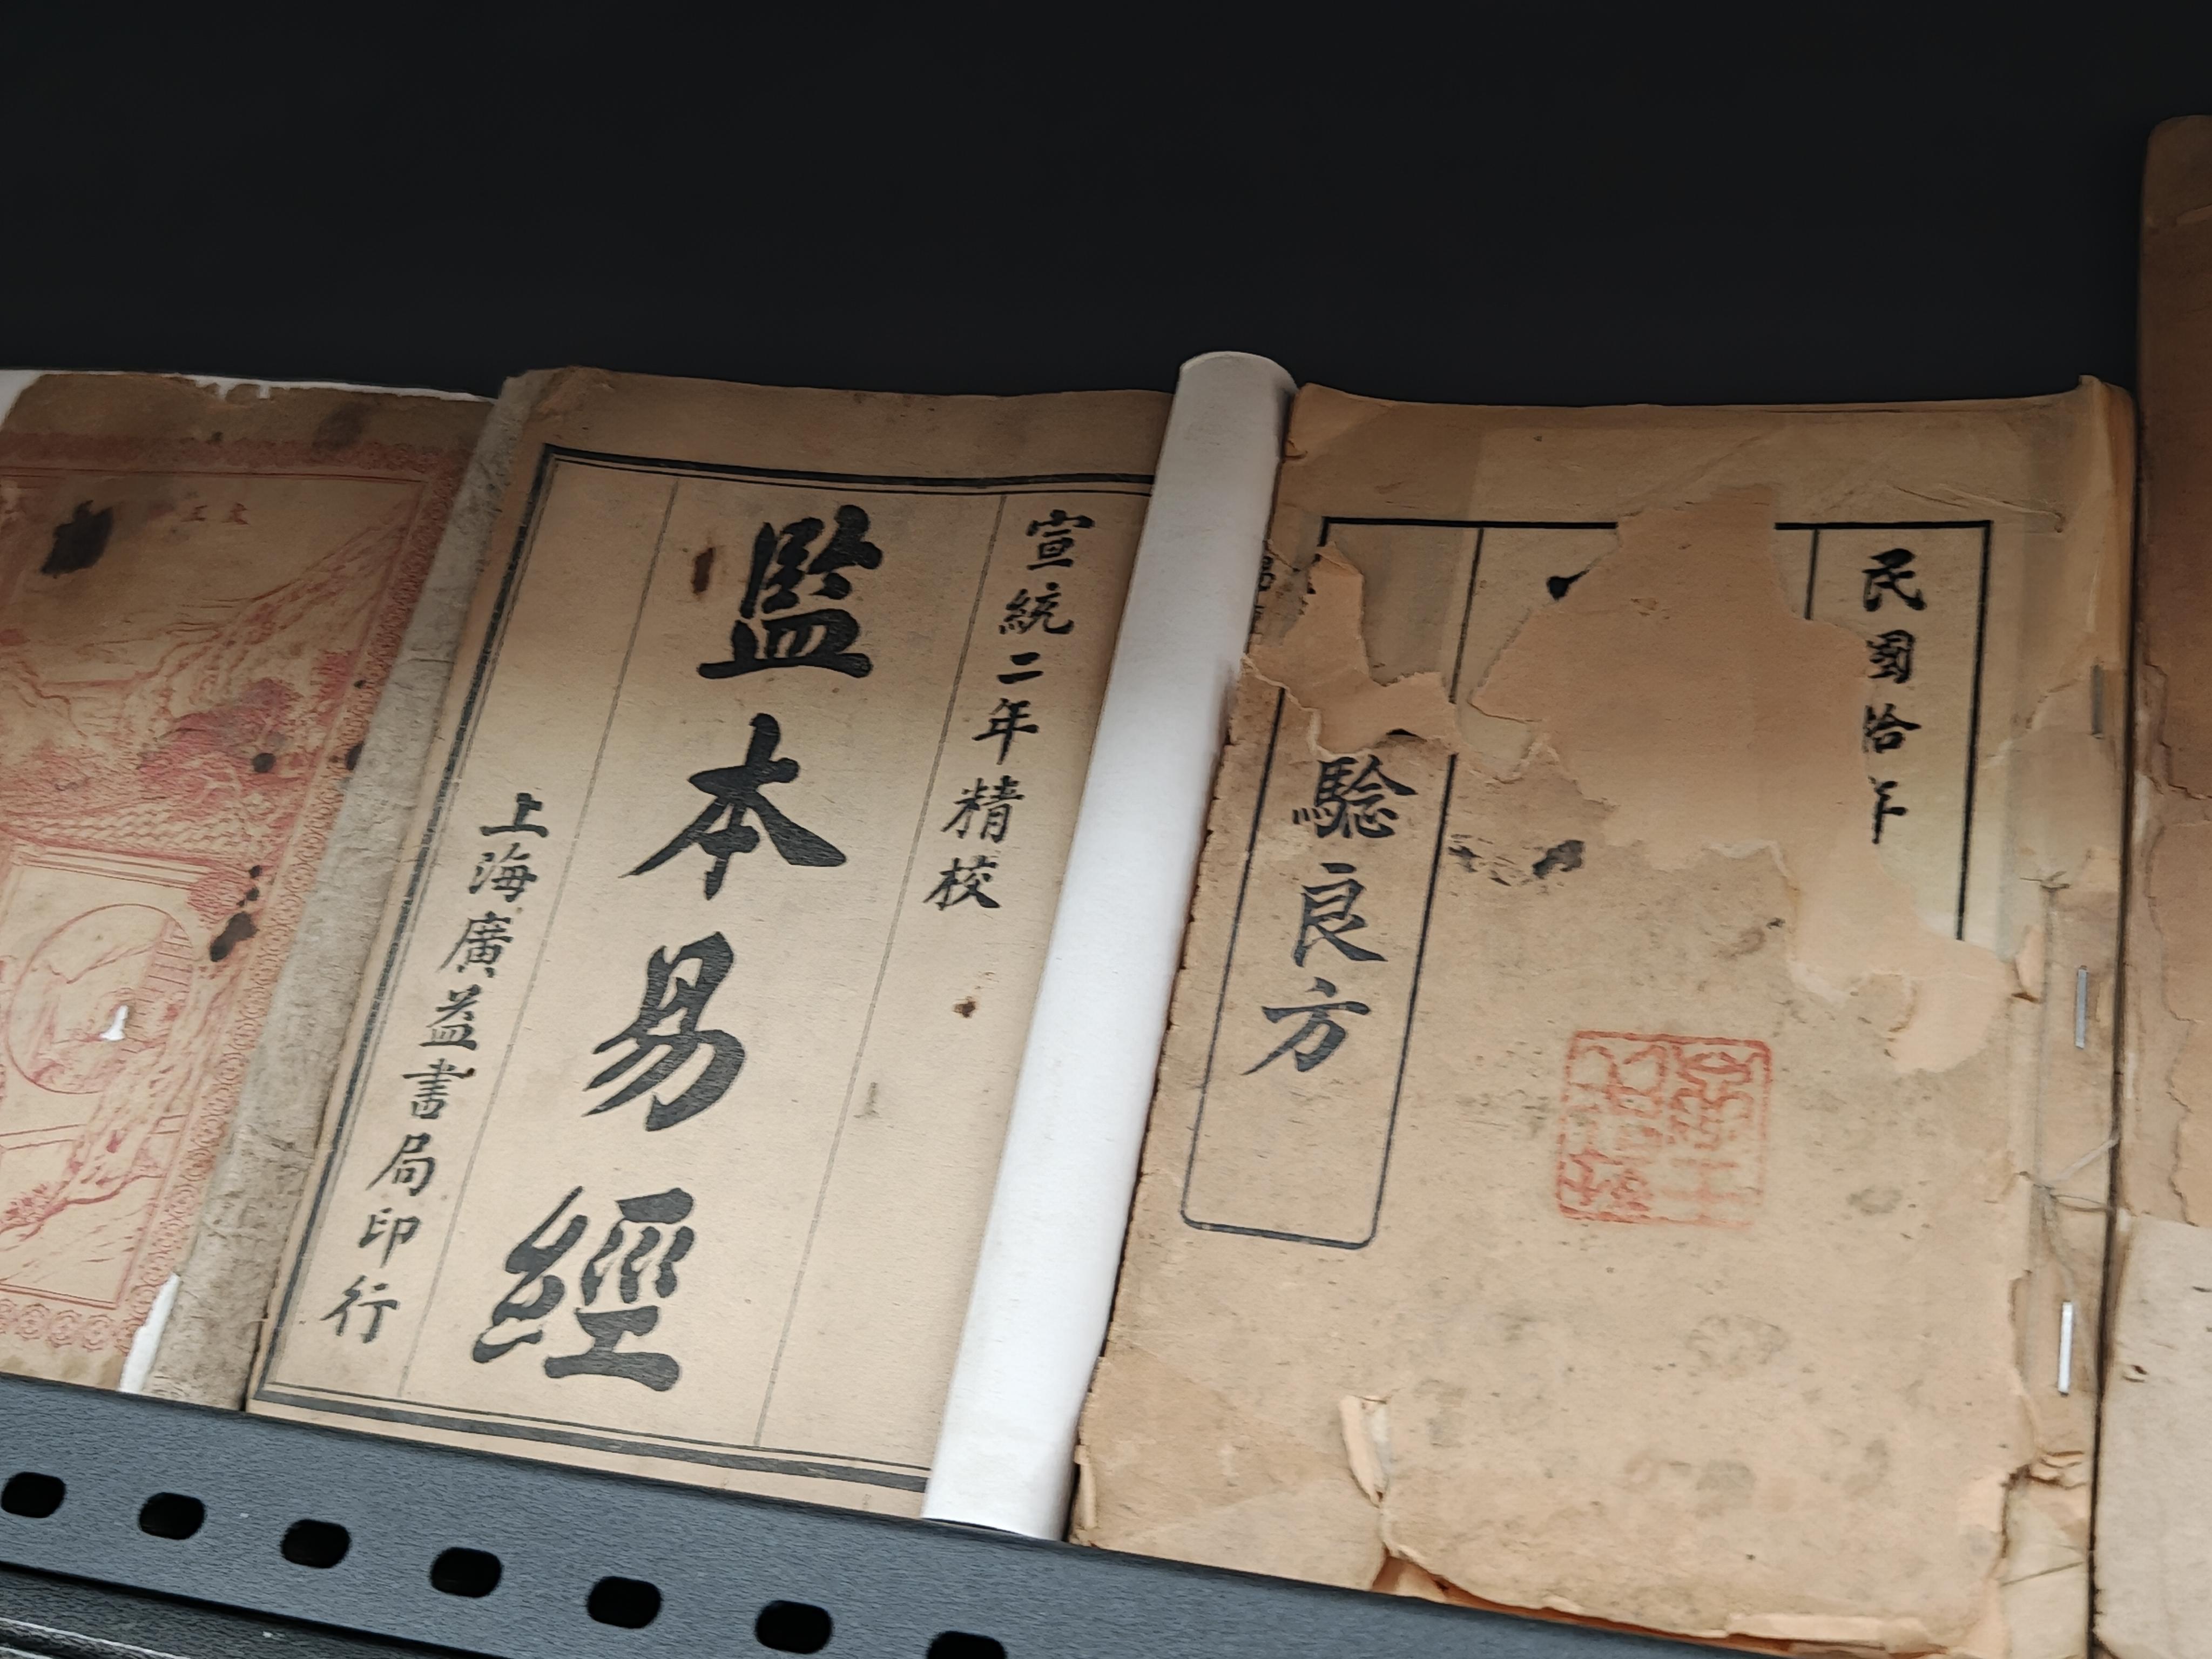 宣統二年精校
監本易經
上海廣益書局印行
民國拾年
驗良方